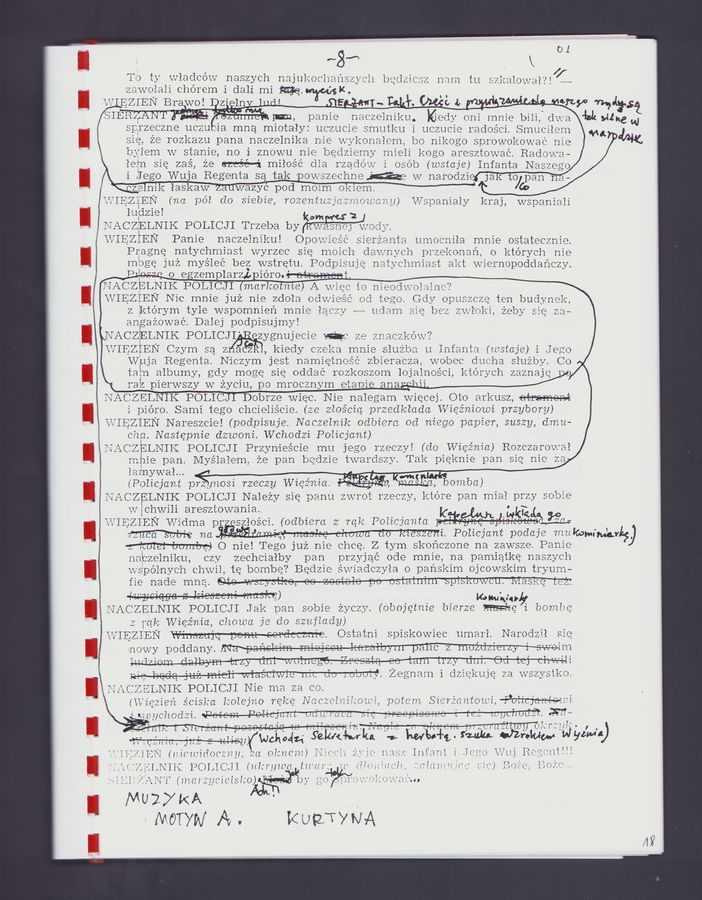 -8-
01
To ty władców naszych najukochańszych będziesz nam tu szkalował?!" —
zawołali chórem i dali mi wycisk.
WIĘZIEŃ Brawo! Dzielny lud!
SIERŻANT - Takt. Cześć i przywiązanie dla naszego rządy są
tak silne w
narodzie
SIERŻANT rozumiem panie naczelniku. Kiedy oni mnie bili, dwa
sprzeczne uczucia mną miotały: uczucie smutku i uczucie radości. Smuciłem
się, że rozkazu pana naczelnika nie wykonałem, bo nikogo sprowokować nie
byłem w stanie, no i znowu nie będziemy mieli kogo aresztować. Radowa-
łem się zaś, że cześć i miłość dla rządów i osób (wstaje) Infanta Naszego
i Jego Wuja Regenta są tak powszechne w narodzie, jak to pan na-
czelnik łaskaw zauważyć pod moim okiem.
/co
WIĘZIEŃ (na pół do siebie, rozentuzjazmowany) Wspaniały kraj, wspaniali
ludzie!
kompres z
NACZELNIK POLICJI Trzeba by kwaśnej wody.
WIĘZIEŃ Panie naczelniku! Opowieść sierżanta umocniła mnie ostatecznie.
Pragnę natychmiast wyrzec się moich dawnych przekonań, o których nie
mogę już myśleć bez wstrętu. Podpisuję natychmiast akt wiernopoddańczy.
Proszę o egzemplarz i pióro. i atrament.
NACZELNIK POLICJI (markotnie) A więc to nieodwołalne?
WIĘZIEŃ Nic mnie już nie zdoła odwieść od tego. Gdy opuszczę ten budynek,
z którym tyle wspomnień mnie łączy — udam się bez zwłoki, żeby się za-
angażować. Dalej podpisujmy!
NACZELNIK POLICJI Rezygnujecie ze znaczków?
WIĘZIEŃ Czym są znaczki, kiedy czeka mnie służba u Infanta (wstaje) i Jego
Wuja Regenta. Niczym jest namiętność zbieracza, wobec ducha służby. Co
tam albumy, gdy mogę się oddać rozkoszom lojalności, których zaznaję po
raz pierwszy w życiu, po mrocznym etapie anarchii.
NACZELNIK POLICJI Dobrze więc. Nie nalegam więcej. Oto arkusz, atrament
i pióro. Sami tego chcieliście. (ze złością przedkłada Więźniowi przybory)
WIĘZIEŃ Nareszcie! (podpisuje. Naczelnik odbiera od niego papier, suszy, dmu-
cha. Następnie dzwoni. Wchodzi Policjant)
NACZELNIK POLICJI Przynieście mu jego rzeczy! (do Więźnia) Rozczarował
mnie pan. Myślałem, że pan będzie twardszy. Tak pięknie pan się nie za-
łamywał...
Kapelusz Kominiarka
(Policjant przynosi rzeczy Więźnia. maska, bomba)
NACZELNIK POLICJI Należy się panu zwrot rzeczy, które pan miał przy sobie
w chwili aresztowania.
Kapelusz, wkłada go
WIĘZIEŃ Widma przeszłości. (odbiera z rąk Policjanta pelerynę spiskową, za-
głowę
rzuca sobie na ramię, maskę chowa do kieszeni. Policjant podaje mu kominiarkę.)
z kolei bombę) O nie! Tego już nie chcę. Z tym skończone na zawsze. Panie
naczelniku, czy zechciałby pan przyjąć ode mnie, na pamiątkę naszych
wspólnych chwil, tę bombę? Będzie świadczyła o pańskim ojcowskim tryum-
fie nade mną. Oto wszystko, co zostało po ostatnim spiskowcu. Maskę też.
(wyciąga z kieszeni maskę)
Kominiarkę
NACZELNIK POLICJI Jak pan sobie życzy. (obojętnie bierze maskę i bombę
z rąk Więźnia, chowa je do szuflady)
WIĘZIEŃ Winszuję panu serdecznie. Ostatni spiskowiec umarł. Narodził się
nowy poddany. Na pańskim miejscu kazałbym palić z moździerzy i swoim
ludziom dałbym trzy dni wolnego. Zresztą co tam trzy dni. Od tej chwili
nie będą już mieli właściwie nic do roboty. Żegnam i dziękuję za wszystko.
NACZELNIK POLICJI Nie ma za co.
(Więzień ściska kolejno rękę Naczelnikowi, potem Sierżantowi, Policjantowi
i wychodzi. Potem Policjant odwraca się przepisowo i też wychodzi. Na-
czelnik i Sierżant pozostają w milczeniu. Nagle za oknem przeraźliwy okrzyk
Więźnia, już z ulicy) (Wchodzi Sekretarka z herbatą, szuka wzrokiem Więźnia)
WIĘZIEŃ (niewidoczny, za oknem) Niech żyje nasz Infant i Jego Wuj Regent!!!
NACZELNIK POLICJI (ukrywa twarz w dłoniach, załamując się) Boże, Boże...
jak tak
SIERŻANT (marzycielsko) by go sprowokować...
Ach!
MUZYKA
MOTYW A. KURTYNA
18